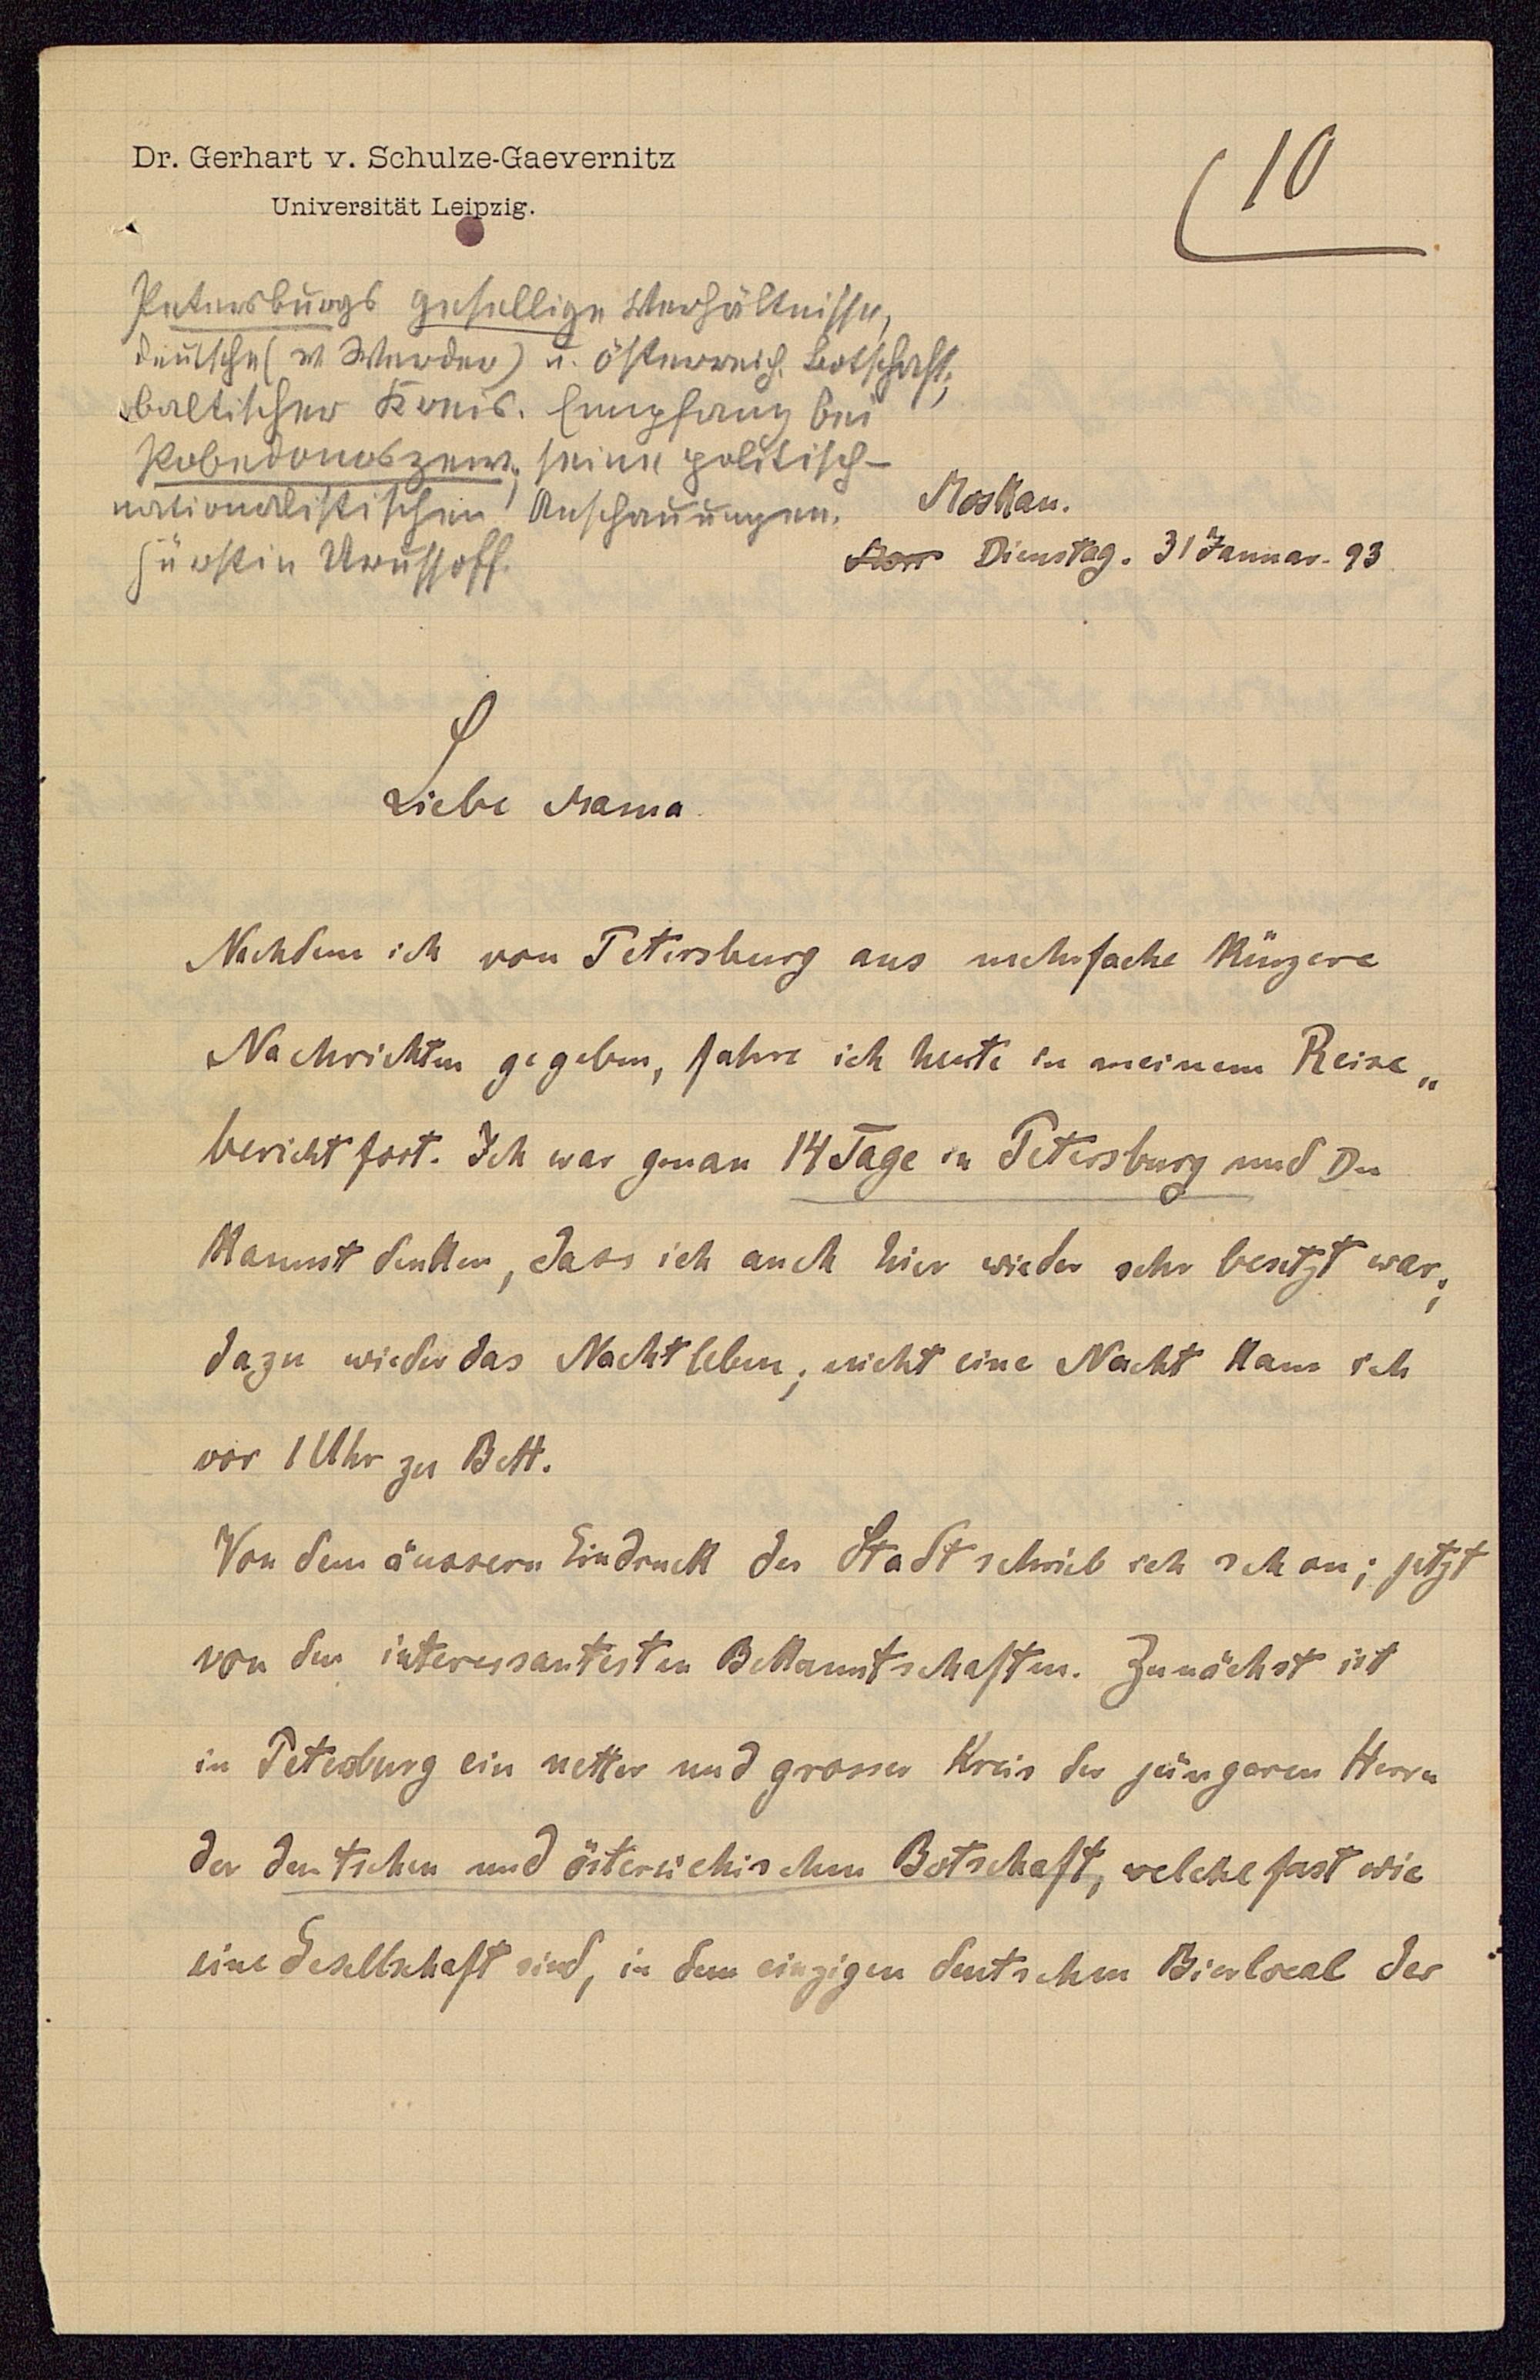 Dr. Gerhart v. Schulze-Gaevernitz
Universität Leipzig.
10
Petersburgs gesellige Verhältnisse,
deutsche (v Werder) u. österreich. Botschaft;
baltischer Kreis. Empfang bei
Pobedonoszew; seine politisch-
nationalistischen Anschauungen.
Fürstin Urussoff.
Moskau.
Dienstag. 31 Januar. 93
Liebe Mama.
Nachdem ich von Petersburg aus mehrfache kürzere
Nachrichten gegeben, fahre ich heute in meinem Reise„
bericht fort. Ich war genau 14 Tage in Petersburg und Du
kannst denken, dass ich auch hier wieder sehr besetzt war;
dazu wieder das Nachtleben; nicht eine Nacht kam ich
vor 1 Uhr zu Bett.
Von dem äussern Eindruck der Stadt schrieb ich schon; jetzt
von den interessantesten Bekanntschaften. Zunächst ist
in Petersburg ein netter und grosser Kreis der jüngeren Herrn
der deutschen und östereichischen Botschaft, welche fast wie
eine Gesellschaft sind, in dem einzigen deutschen Bierlocal der